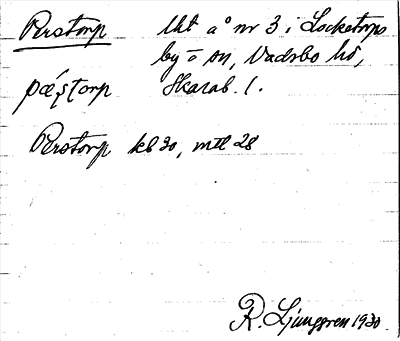 Perstorp Ukt a° nr 3 i Locketorps
by o sn, Vadsbo hd,
pǽ̨ştorp Skarab. l.
Perstorp kb 30, mtl 28
R. Ljunggren 1930